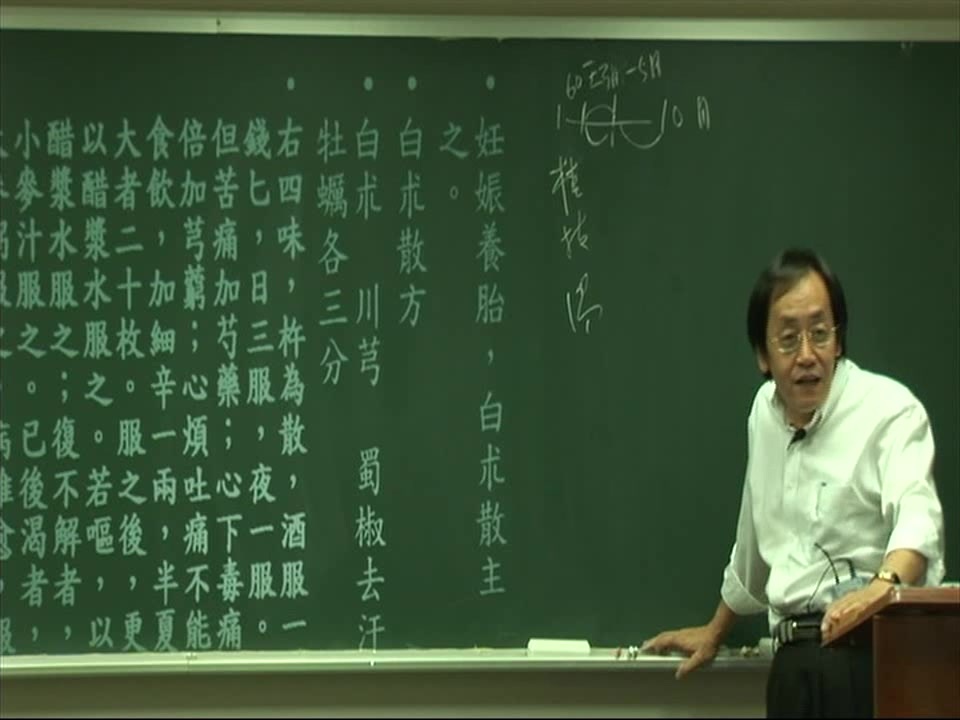 10月
・妊娠養胎，白朮散主
之。
・白朮散方
・白朮 川芎 蜀椒去汗
牡蠣各三分
・右四味，杵為散，酒服一
錢匕，日三服，夜一服。
但苦痛加芍藥；心下毒痛
倍加芎藭；心煩吐痛不能
食飲，加細辛一兩，半夏
大者二十枚。服之後，更
以醋漿水服之。若嘔，以
醋漿水服之；復不解者，
小麥汁服之。已後渴者，